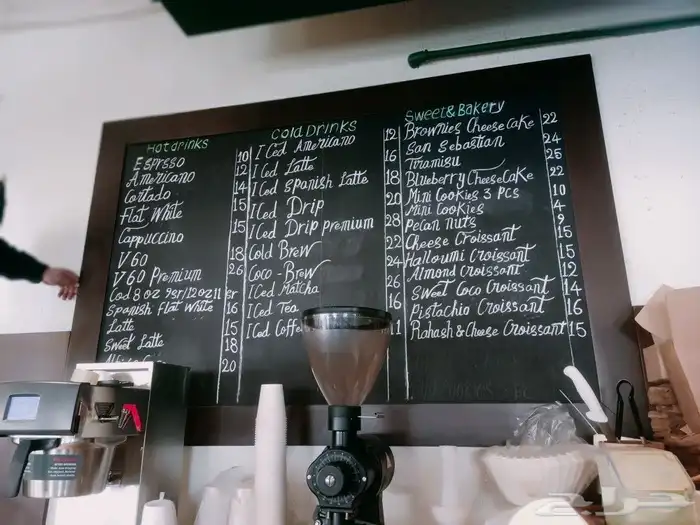 Hot drinks
Espresso 10
Americano 12
Cortado 14
Flat White 15
Cappuccino 15
V60 18
V60 Premium 26
Cod 8 oz 9sr/12 oz 11 sr
Spanish Flat White 16
Latte 15
Sweet Latte 18
20
Cold Drinks
ICed Americano 12
ICed Latte 16
ICed Spanish Latte 18
ICed Drip 20
ICed Drip premium 28
Cold Brew 22
Coco-Brew 24
ICed Matcha 26
ICed Tea 16
ICed Coffe 11
Sweet & Bakery
Brownies CheeseCake 22
San Sebastian 24
Tiramisu 25
Blueberry CheeseCake 22
Mini Cookies 3 PCS 10
Mini Cookies 4
Pecan nuts 9
Cheese Croissant 15
Halloumi Croissant 15
Almond Croissant 12
Sweet Coco Croissant 14
Pistachio Croissant 16
Rahash & Cheese Croissant 15
حراج